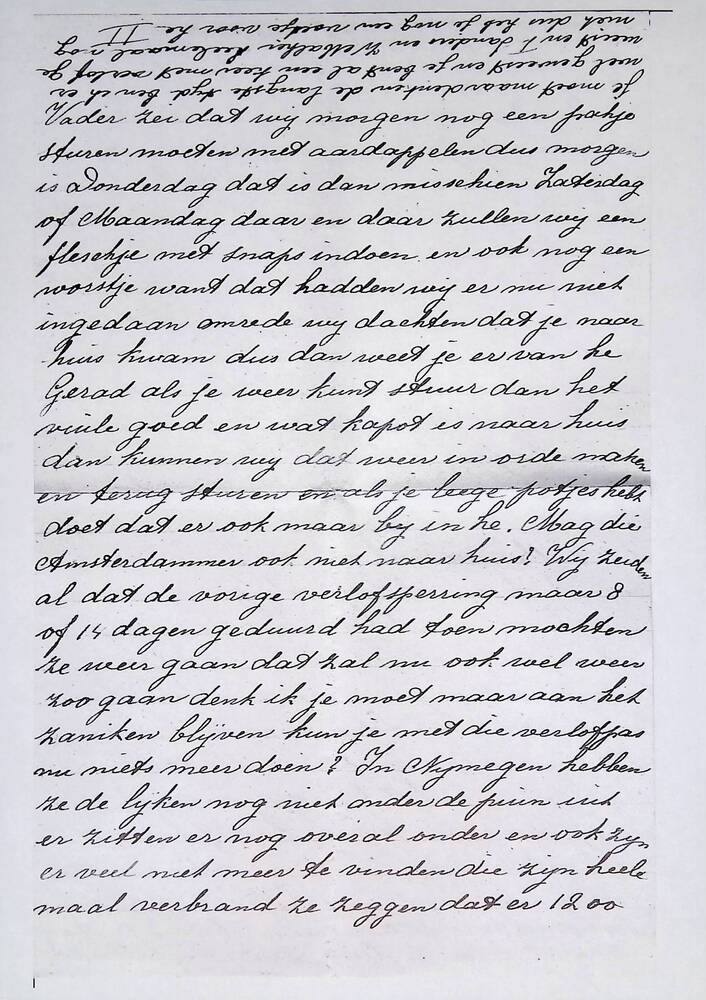 II
Je moet maar denken de langste tyd ben ik er
wel geweest en je bent al een keer met verlof ge
weest en F Sanders en heelemaal nog
niet dus heb je nog een voetje voor he
Vader zei dat wij morgen nog een pakje
sturen moeten met aardappelen dus morgen
is Donderdag dat is dan misschien Zaterdag
of Maandag daar en daar zullen wij een
fleschje met snaps indoen en ook nog een
worstje want dat hadden wij er nu niet
ingedaan omrede wy dachten dat je naar
huis kwam dus dan weet je er van he
Gerad als je weer kunt stuur dan het
vuile goed en wat kapot is naar huis
dan kunnen wy dat weer in orde maken
en terug sturen en als je leege potjes hebt
doet dat er ook maar by in he. Mag die
Amsterdammer ook niet naar huis? Wij zeiden
al dat de vorige verlofsperring maar 8
of 14 dagen geduurd had toen mochten
ze weer gaan dat zal nu ook wel weer
zoo gaan denk ik je moet maar aan het
zaniken blijven kun je met die verlofpas
nu niets meer doen? In Nymegen hebben
ze de lyken nog niet onder de puin uit
er zitten er nog overal onder en ook zyn
er veel niet meer te vinden die zijn heele
maal verbrand ze zeggen dat er 1200